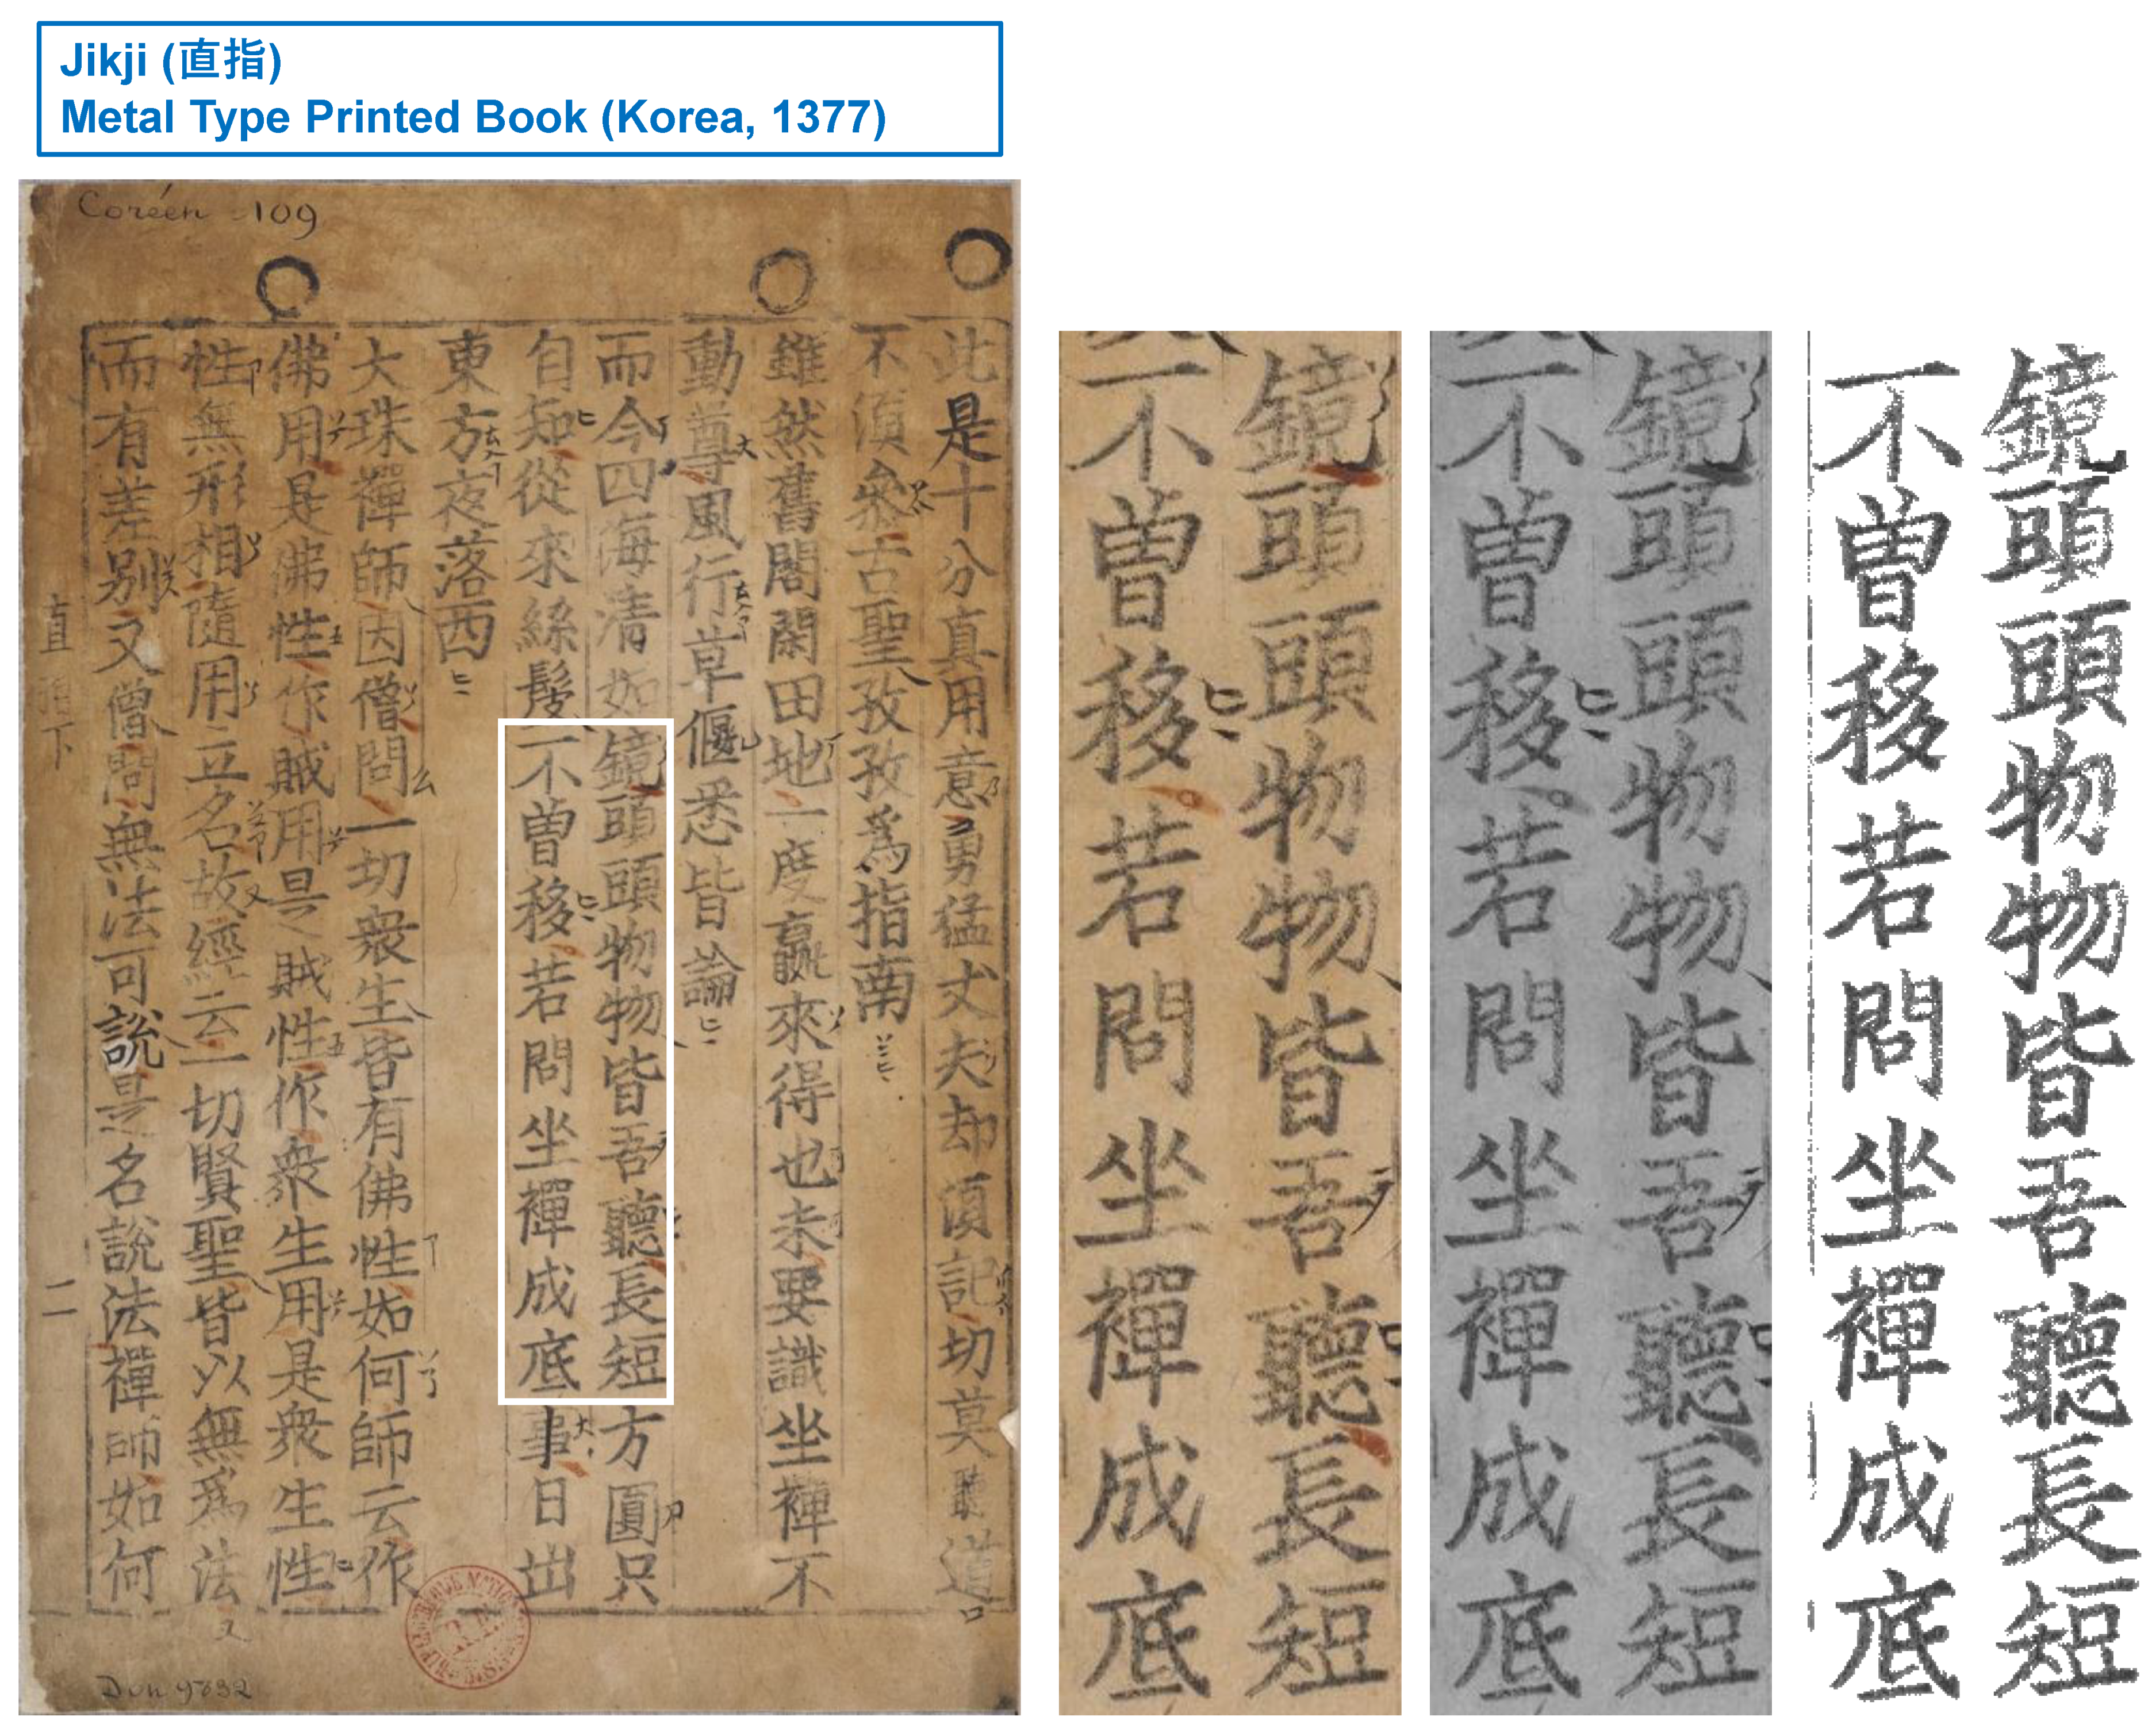 Jikji (直指)
Metal Type Printed Book (Korea, 1377)
Coréen 109
此是十分真用意勇猛丈夫却湏記切莫聽道
不湏叅古聖孜孜爲指南
雖然舊閣閑田地一度贏來得也未要識坐禪不
動尊風行草偃悉皆論
而今四海清如鏡頭頭物物皆吾聽長短方圓只
自知從來絲髮不曾移若問坐禪成底事日出
東方夜落西
大珠禪師因僧問一切衆生皆有佛性如何師云作
佛用是佛性作賊用是賊性作衆生用是衆生性
性無形相隨用立名故經云一切賢聖皆以無爲法
而有差別又僧問無法可說是名說法禪師如何
直指下 二
鏡頭頭物物皆吾聽長短
不曾移若問坐禪成底
鏡頭頭物物皆吾聽長短
不曾移若問坐禪成底
鏡頭頭物物皆吾聽長短
不曾移若問坐禪成底